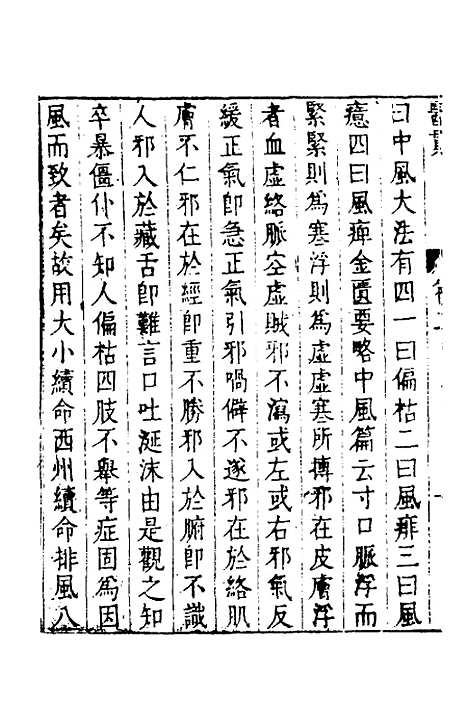 醫貫 卷二
曰中風大法有四一曰偏枯二曰風痱三曰風
癔四曰風痺金匱要略中風篇云寸口脈浮而
緊緊則爲寒浮則爲虛虛塞所摶邪在皮膚浮
者血虛絡脈空虛賊邪不瀉或左或右邪氣反
緩正氣即急正氣引邪喎僻不遂邪在於絡肌
膚不仁邪在於經即重不勝邪入於腑即不識
人邪入於藏舌即難言口吐涎沫由是觀之知
卒暴僵仆不知人偏枯四肢不舉等症固爲因
風而致者矣故用大小續命西州續命排風八